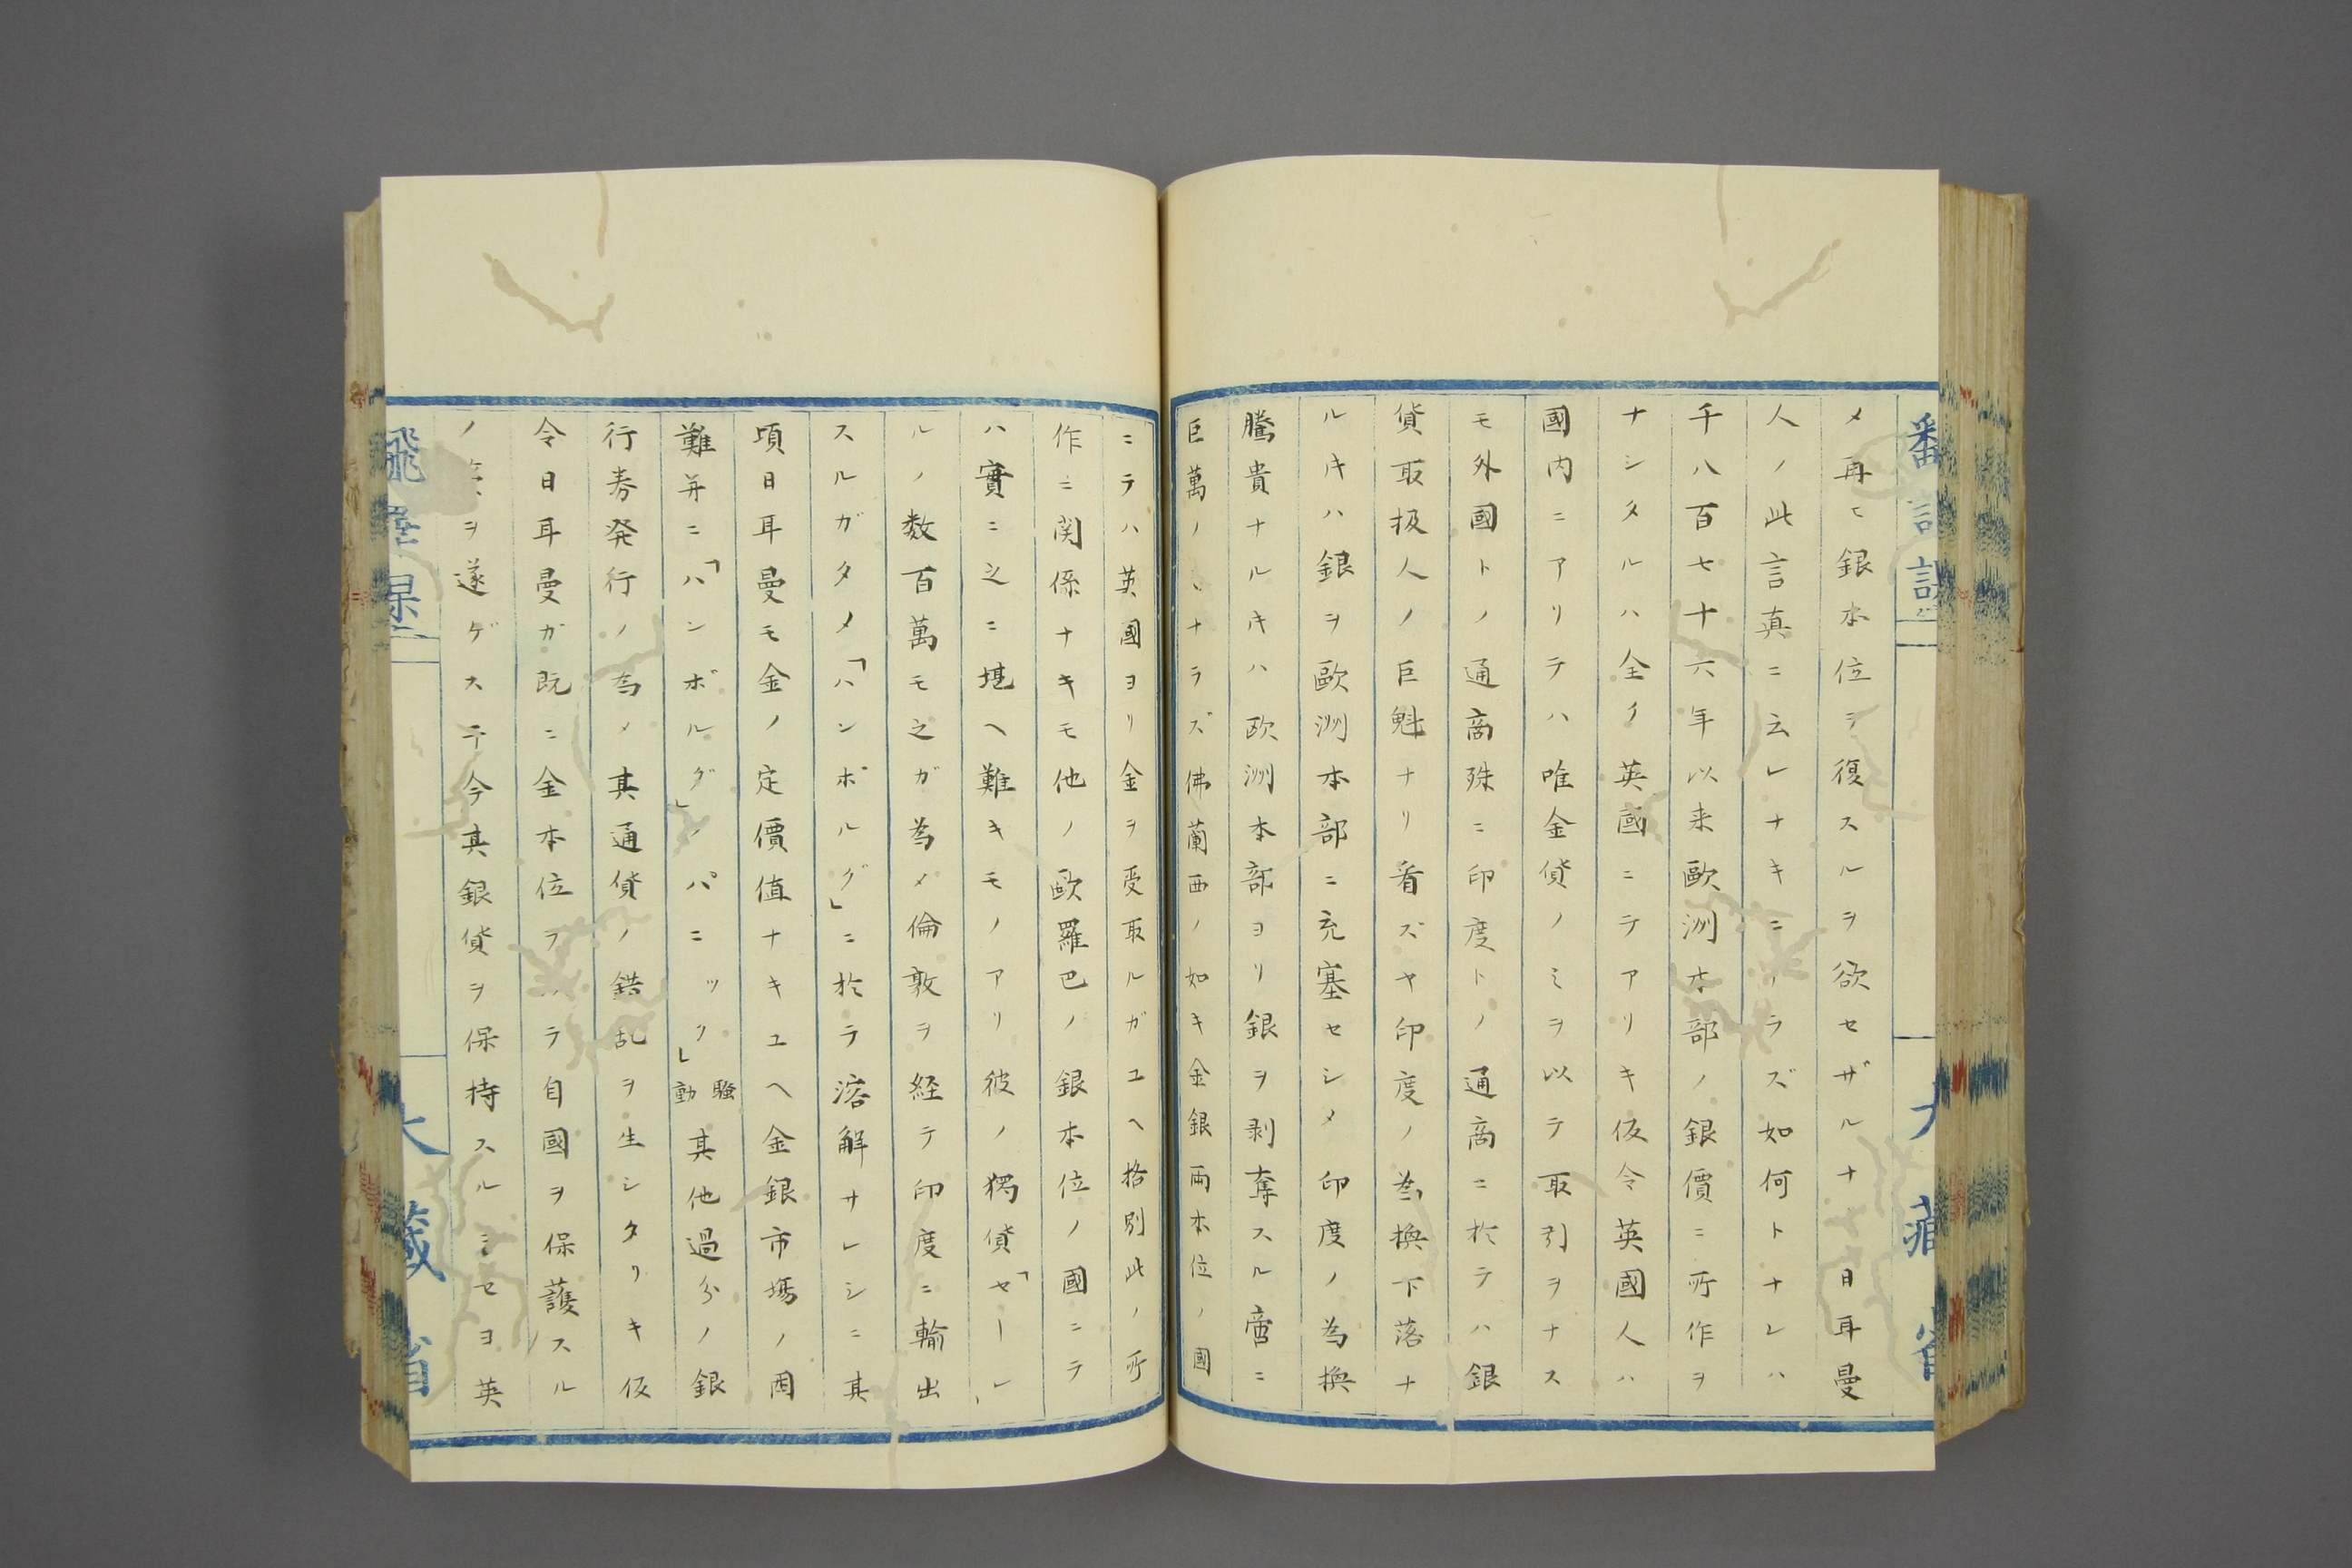 メ再ヒ銀本位ヲ復スルヲ欲セザルナ日耳曼
人ノ此言真ニ云レナキニラズ如何トナレハ
千八百七十六年以来歐洲本部ノ銀價ニ所作ヲ
ナシタルハ全ク英國ニテアリキ仮令英國人ハ
國内ニアリテハ唯金貨ノミヲ以テ取引ヲナス
モ外國トノ通商殊ニ印度トノ通商ニ於テハ銀
貨取扱人ノ巨魁ナリ看ズヤ印度ノ為換下落ナ
ルキハ銀ヲ歐洲本部ニ充塞セシメ印度ノ為換
騰貴ナルキハ欧洲本部ヨリ銀ヲ剥奪スル啻ニ
巨萬ノナラズ佛蘭西ノ如キ金銀兩本位ノ國
ニテハ英國ヨリ金ヲ受取ルガユヘ格別此ノ所
作ニ関係ナキモ他ノ歐羅巴ノ銀本位ノ國ニテ
ハ實ニ之ニ堪ヘ難キモノアリ彼ノ獨貨「セーレ
ルノ数百萬モ之ガ為メ倫敦ヲ経テ印度ニ輸出
スルガタメ「ハンボルグ」ニ於テ溶解サレシニ其
頃日耳曼モ金ノ定價値ナキユヘ金銀市場ノ困
難并ニ「ハンボルグ」ノパニック」騒動其他過分ノ銀
行券発行ノ為メ其通貨ノ錯乱ヲ生シタリキ仮
令日耳曼ガ既ニ金本位ヲテ自國ヲ保護スル
ノヲ遂ゲスニ今其銀貨ヲ保持スルニセヨ英
番訳課
大藏省
飜譯課
大藏省